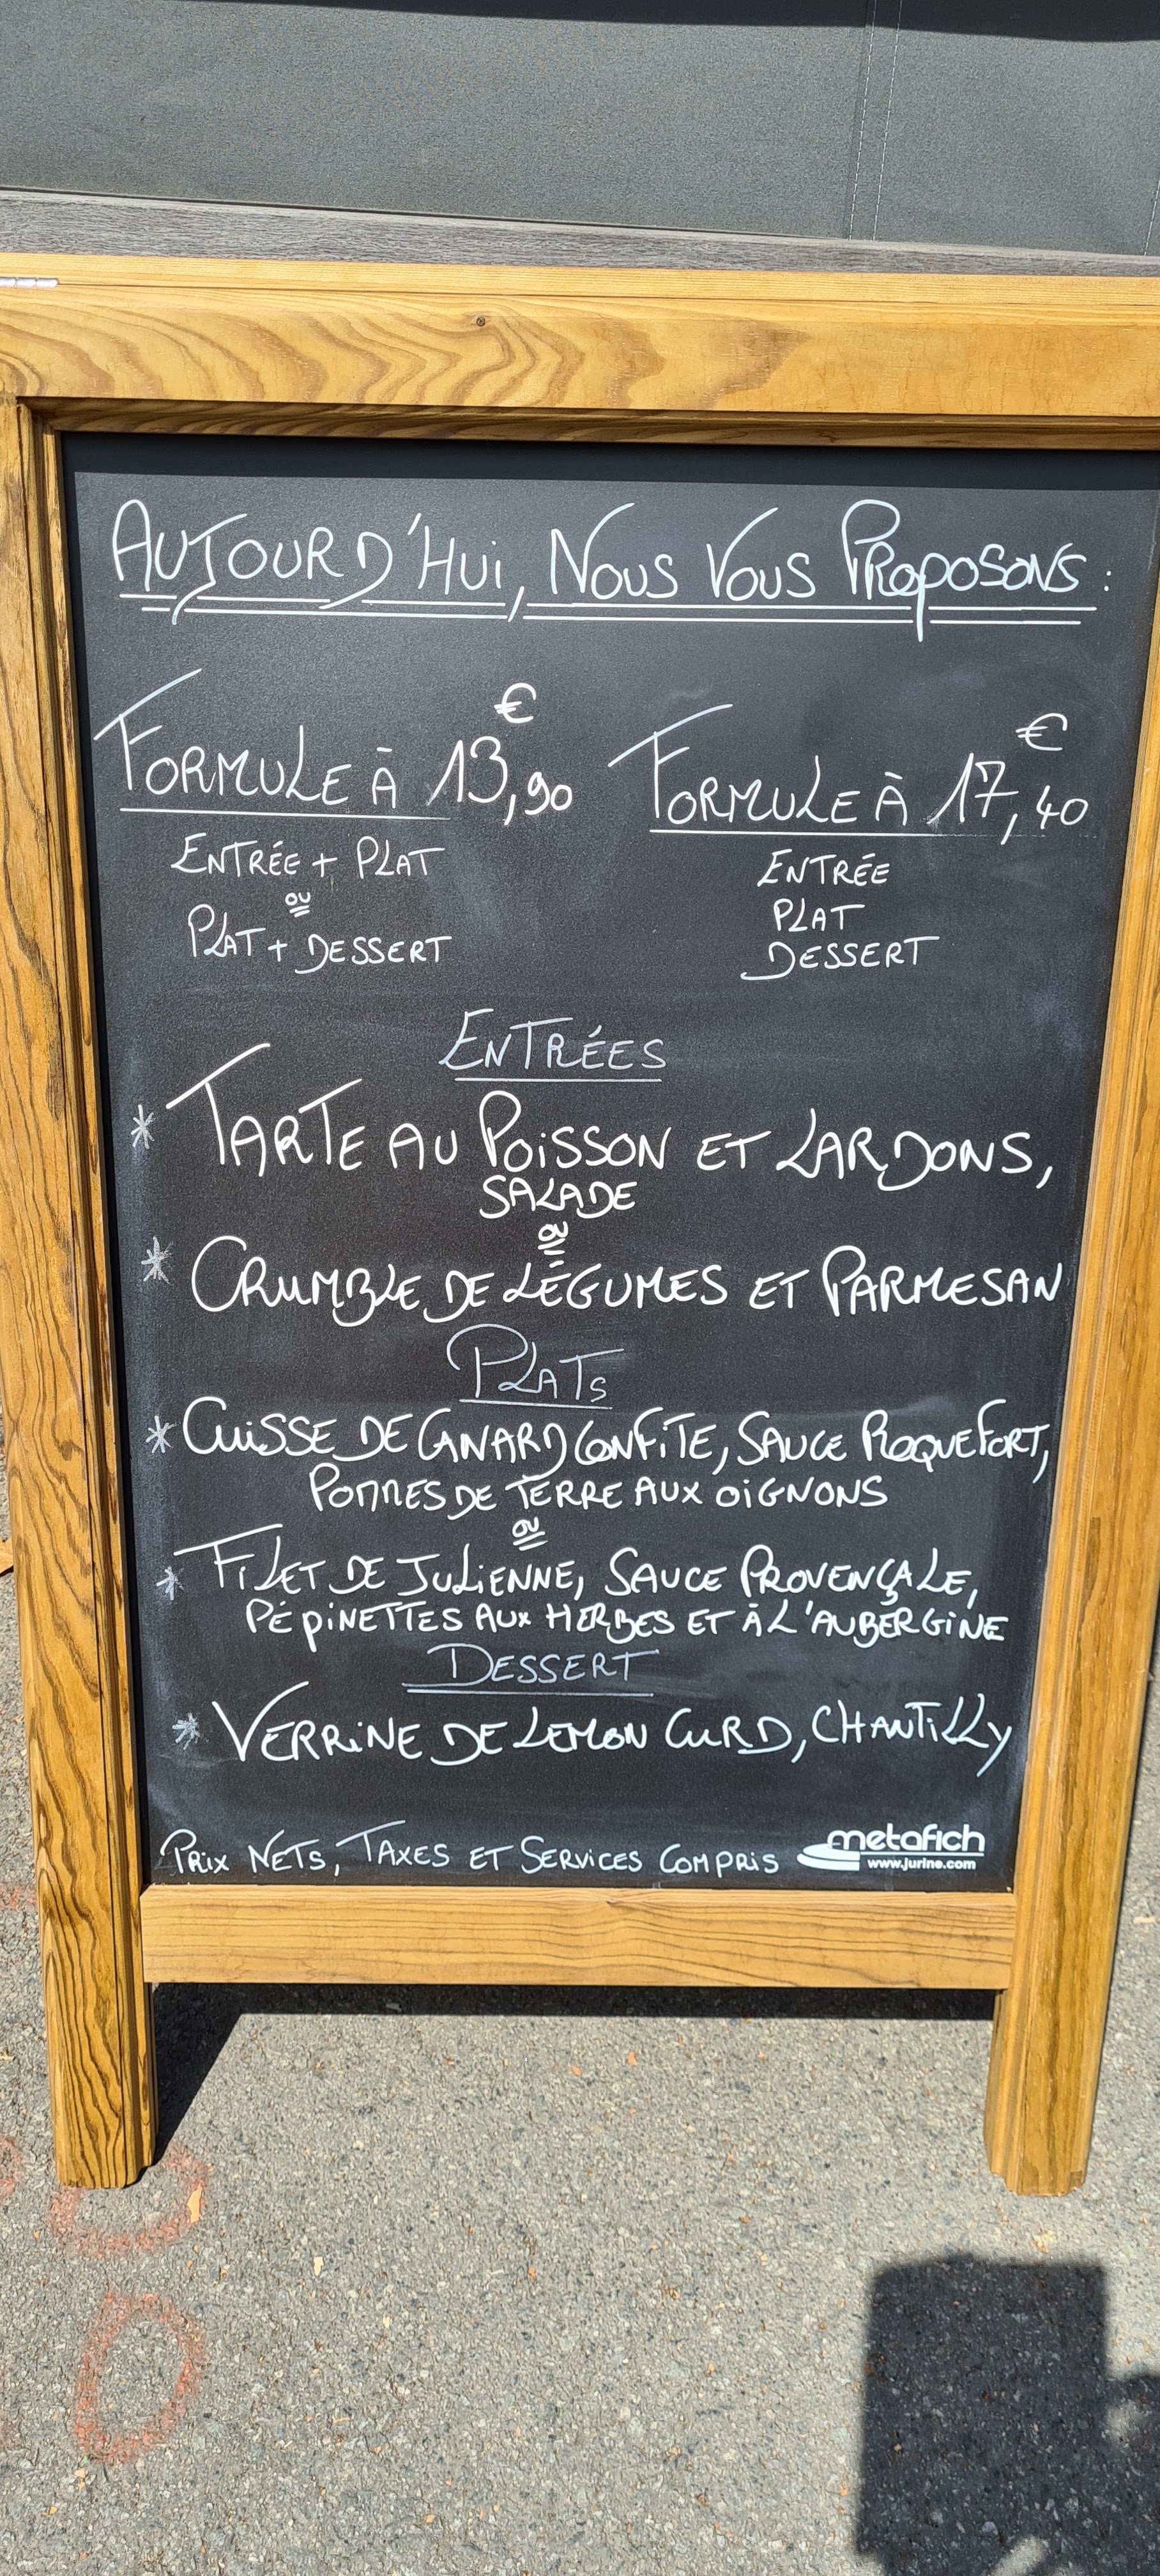 AUJOURD'HUI, NOUS VOUS PROPOSONS :
FORMULE À 13,90 €
ENTRÉE + PLAT
OU
PLAT + DESSERT
FORMULE À 17,40 €
ENTRÉE
PLAT
DESSERT
ENTRÉES
* TARTE AU POISSON ET LARDONS,
SALADE
OU
* CRUMBLE DE LÉGUMES ET PARMESAN
PLATS
* CUISSE DE CANARD CONFITE, SAUCE ROQUEFORT,
POMMES DE TERRE AUX OIGNONS
OU
* FILET DE JULIENNE, SAUCE PROVENÇALE,
PÉPINETTES AUX HERBES ET À L'AUBERGINE
DESSERT
* VERRINE DE LEMON CURD, CHANTILLY
PRIX NETS, TAXES ET SERVICES COMPRIS
metafich
www.jurine.com